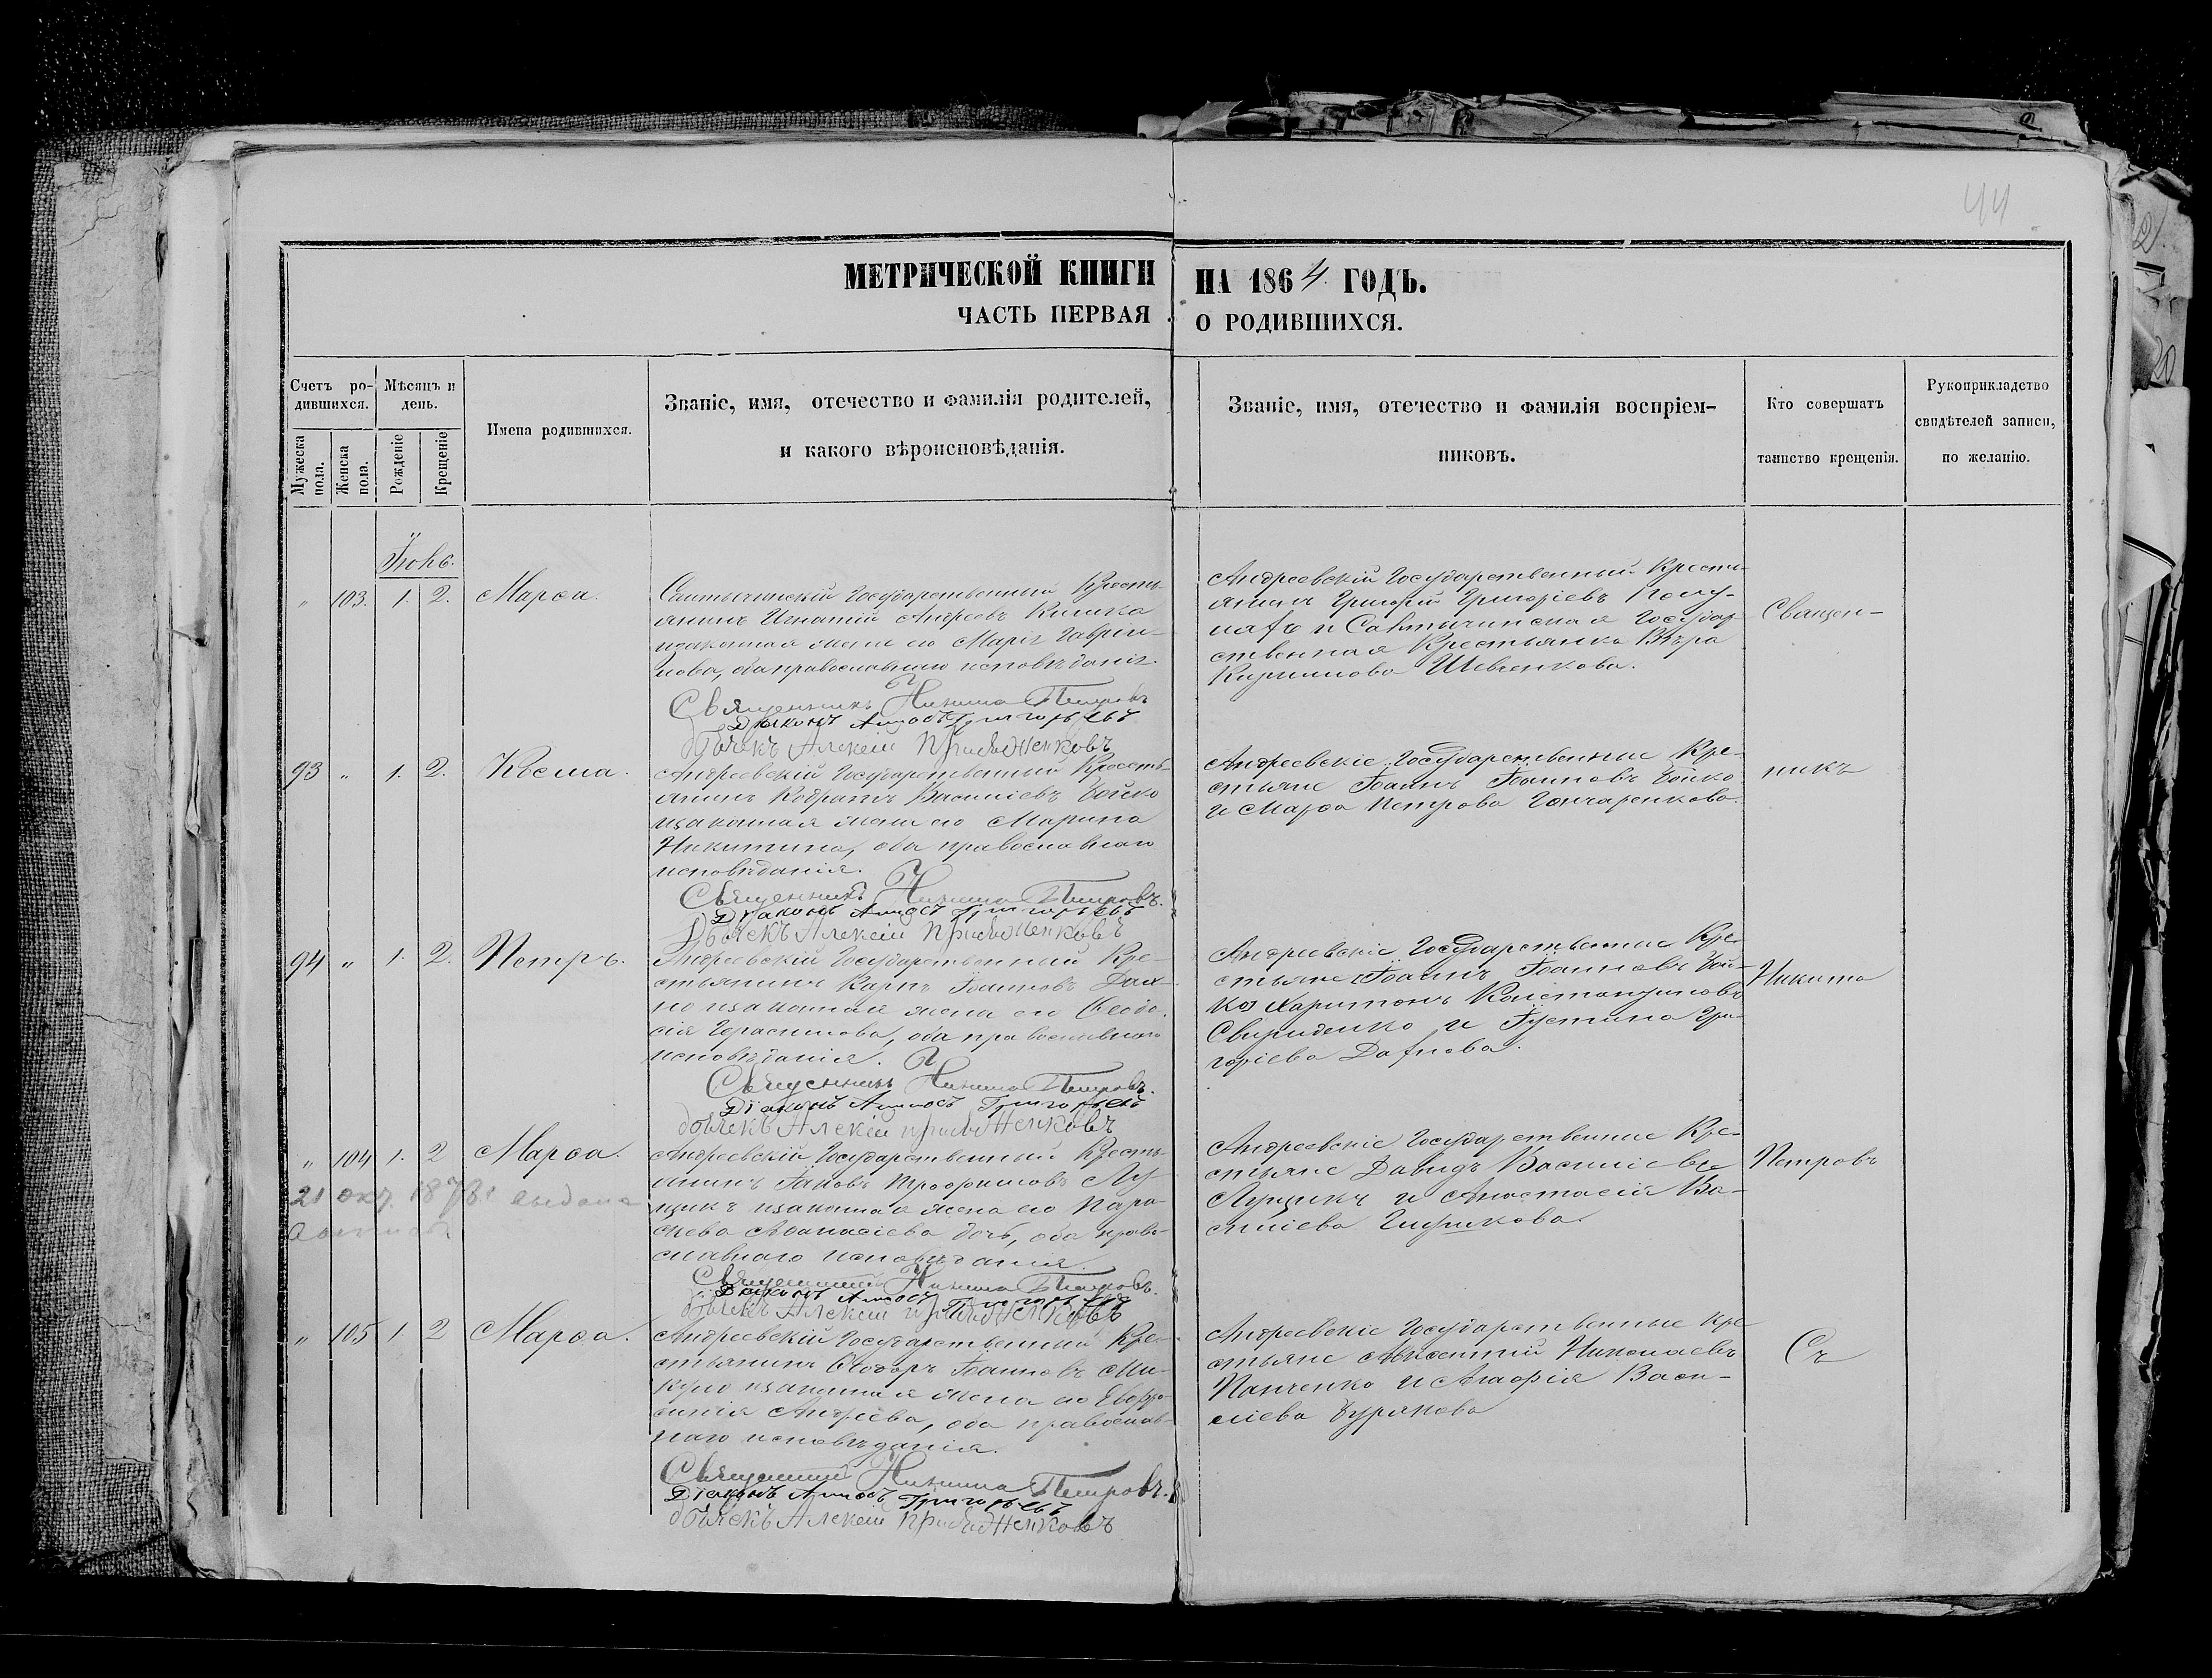 44
МЕТРИЧЕСКОЙ КНИГИ НА 1864 ГОДЪ.
ЧАСТЬ ПЕРВАЯ О РОДИВШИХСЯ.
Счетъ ро-
дившихся.
Мужеска пола.
Женска пола.
Мѣсяцъ и
день.
Рожденіе
Крещеніе
Имена родившихся.
Званіе, имя, отечество и фамилія родителей,
и какого вѣроисповѣданія.
Званіе, имя, отечество и фамилія воспріем-
никовъ.
Кто совершатъ
таинство крещенія.
Рукоприкладство
свидѣтелей записи,
по желанію.
" 103. 1. 2. Марѳа.
Государственный Кресть-
янинъ Игнатій Андреевъ Кишка
изаконная жена его Марія Гаврiи-
лова, оба православнаго исповѣданія.
Священникъ Никита Петровъ
Діаконъ Амосъ Григорьевъ
Алексій
Андреевскій Государственный Кресть-
янинъ Григорій Григоріевъ
и Государ-
ственная Крестьянка Вѣра
Кирилова Шевченкова.
Священ-
93 " 1. 2. Косма.
Андреевскій Государственный Кресть-
янинъ Кодратъ Василіевъ Бойко
изаконная жена его Марина
Никитина, оба православнаго
исповѣданія.
Священникъ Никита Петровъ.
Діаконъ Амосъ Григорьевъ
Алексій
Андреевскіе Государственные Кре-
стьяне Іоаннъ Іоанновъ Бойко
и Марѳа Петрова Гончаренкова.
никъ
94 " 1. 2. Петръ.
Андреевскій Государственный Кре-
стьянинъ Карпъ Іоанновъ Дах-
но изаконная жена его Ѳеодо-
сія Герасимова, оба православнаго
исповѣданія.
Священникъ Никита Петровъ.
Діаконъ Амосъ Григорьевъ
Алексій
Андреевскіе Государственные Кре-
стьяне Іоаннъ Іоанновъ Бой-
ко Харитонъ Константиновъ
Свириденко и Іустина Гри-
горіева Дахнова.
Никита
" 104 1. 2 Марѳа.
21 окт. выдана
Андреевскій Государственный Кресть-
янинъ Іаковъ Трофимовъ Лу-
щикъ изаконная жена его Пара-
скева Аѳанасіева дочь, оба право-
славнаго исповѣданія.
Священникъ Никита Петровъ.
Діаконъ Амосъ Григорьевъ
Алексій
Андреевскіе Государственные Кре-
стьяне Давидъ Василіевъ
Лущикъ и Анастасія Ва-
силіева
Петровъ
" 105 1. 2 Марѳа.
Андреевскій Государственный Кре-
стьянинъ Ѳеодоръ Іоанновъ Ми-
изаконная жена его Евфро-
синія Андріева, оба православ-
наго исповѣданія.
Священникъ Никита Петровъ.
Діаконъ Амосъ Григорьевъ
Алексій
Андреевскіе Государственные Кре-
стьяне Авксентій Николаевъ
Панченко и Агафія Васи-
ліева Бурякова
Съ